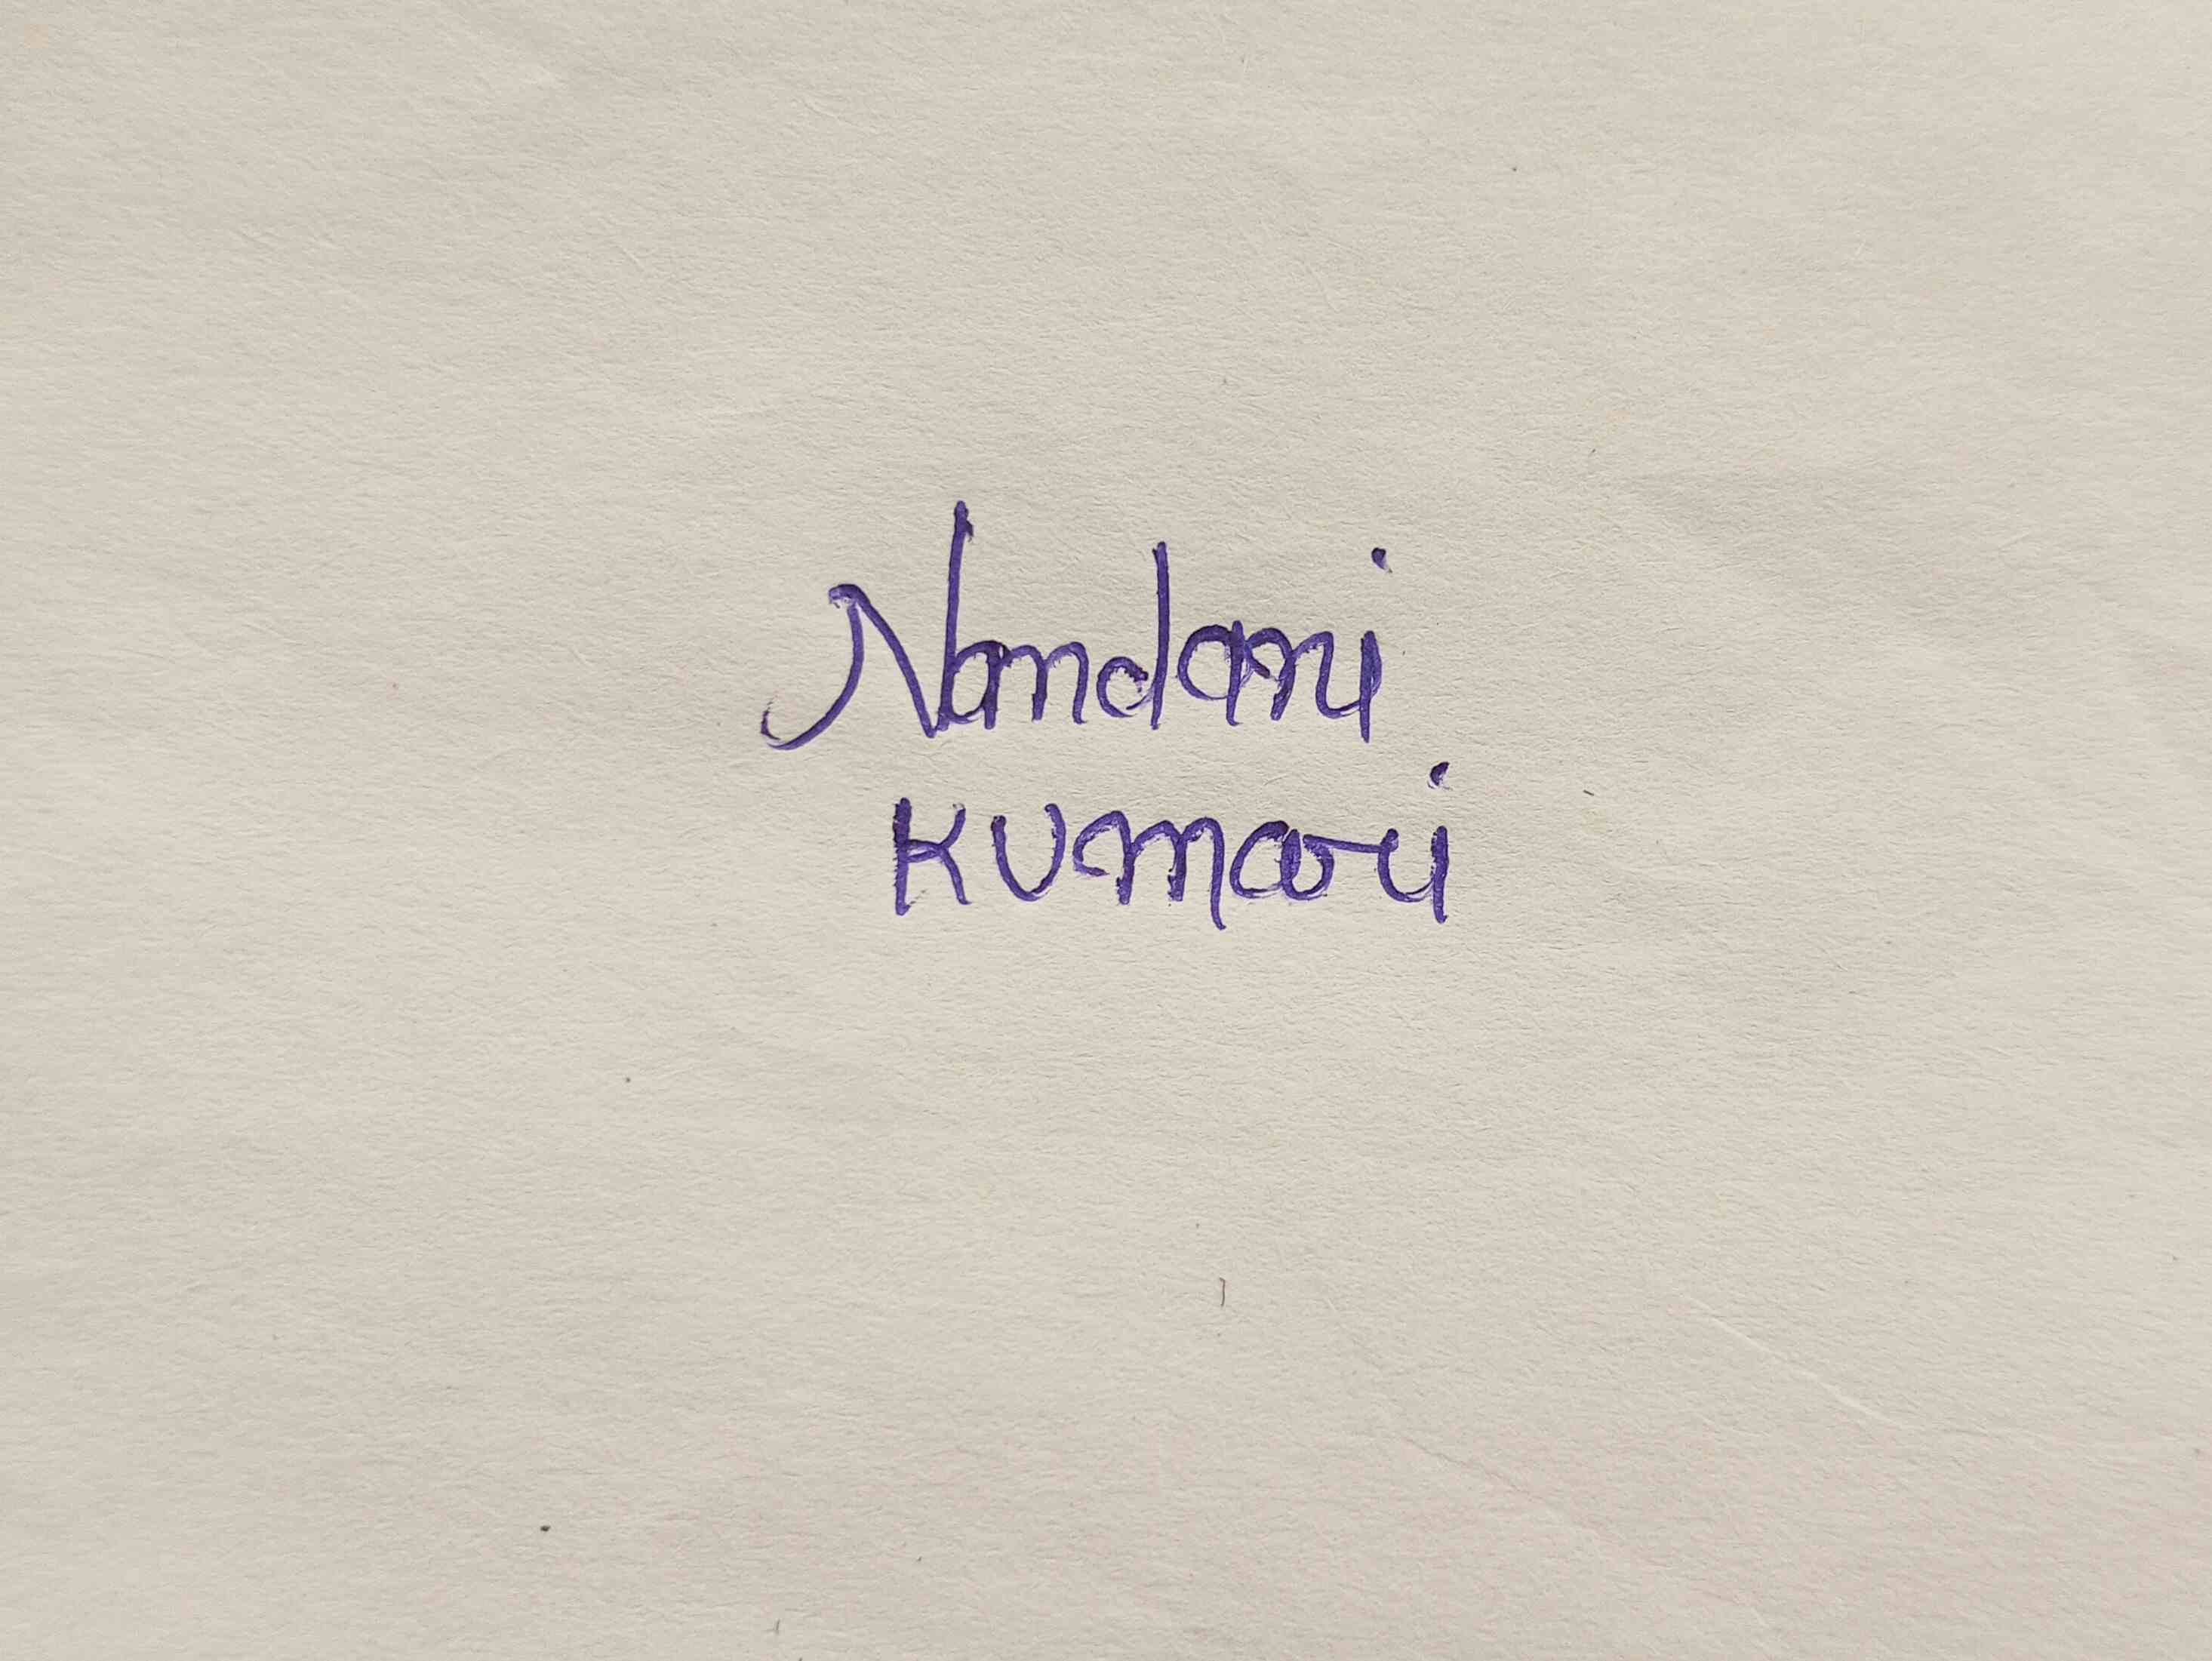 Nandani
Kumari